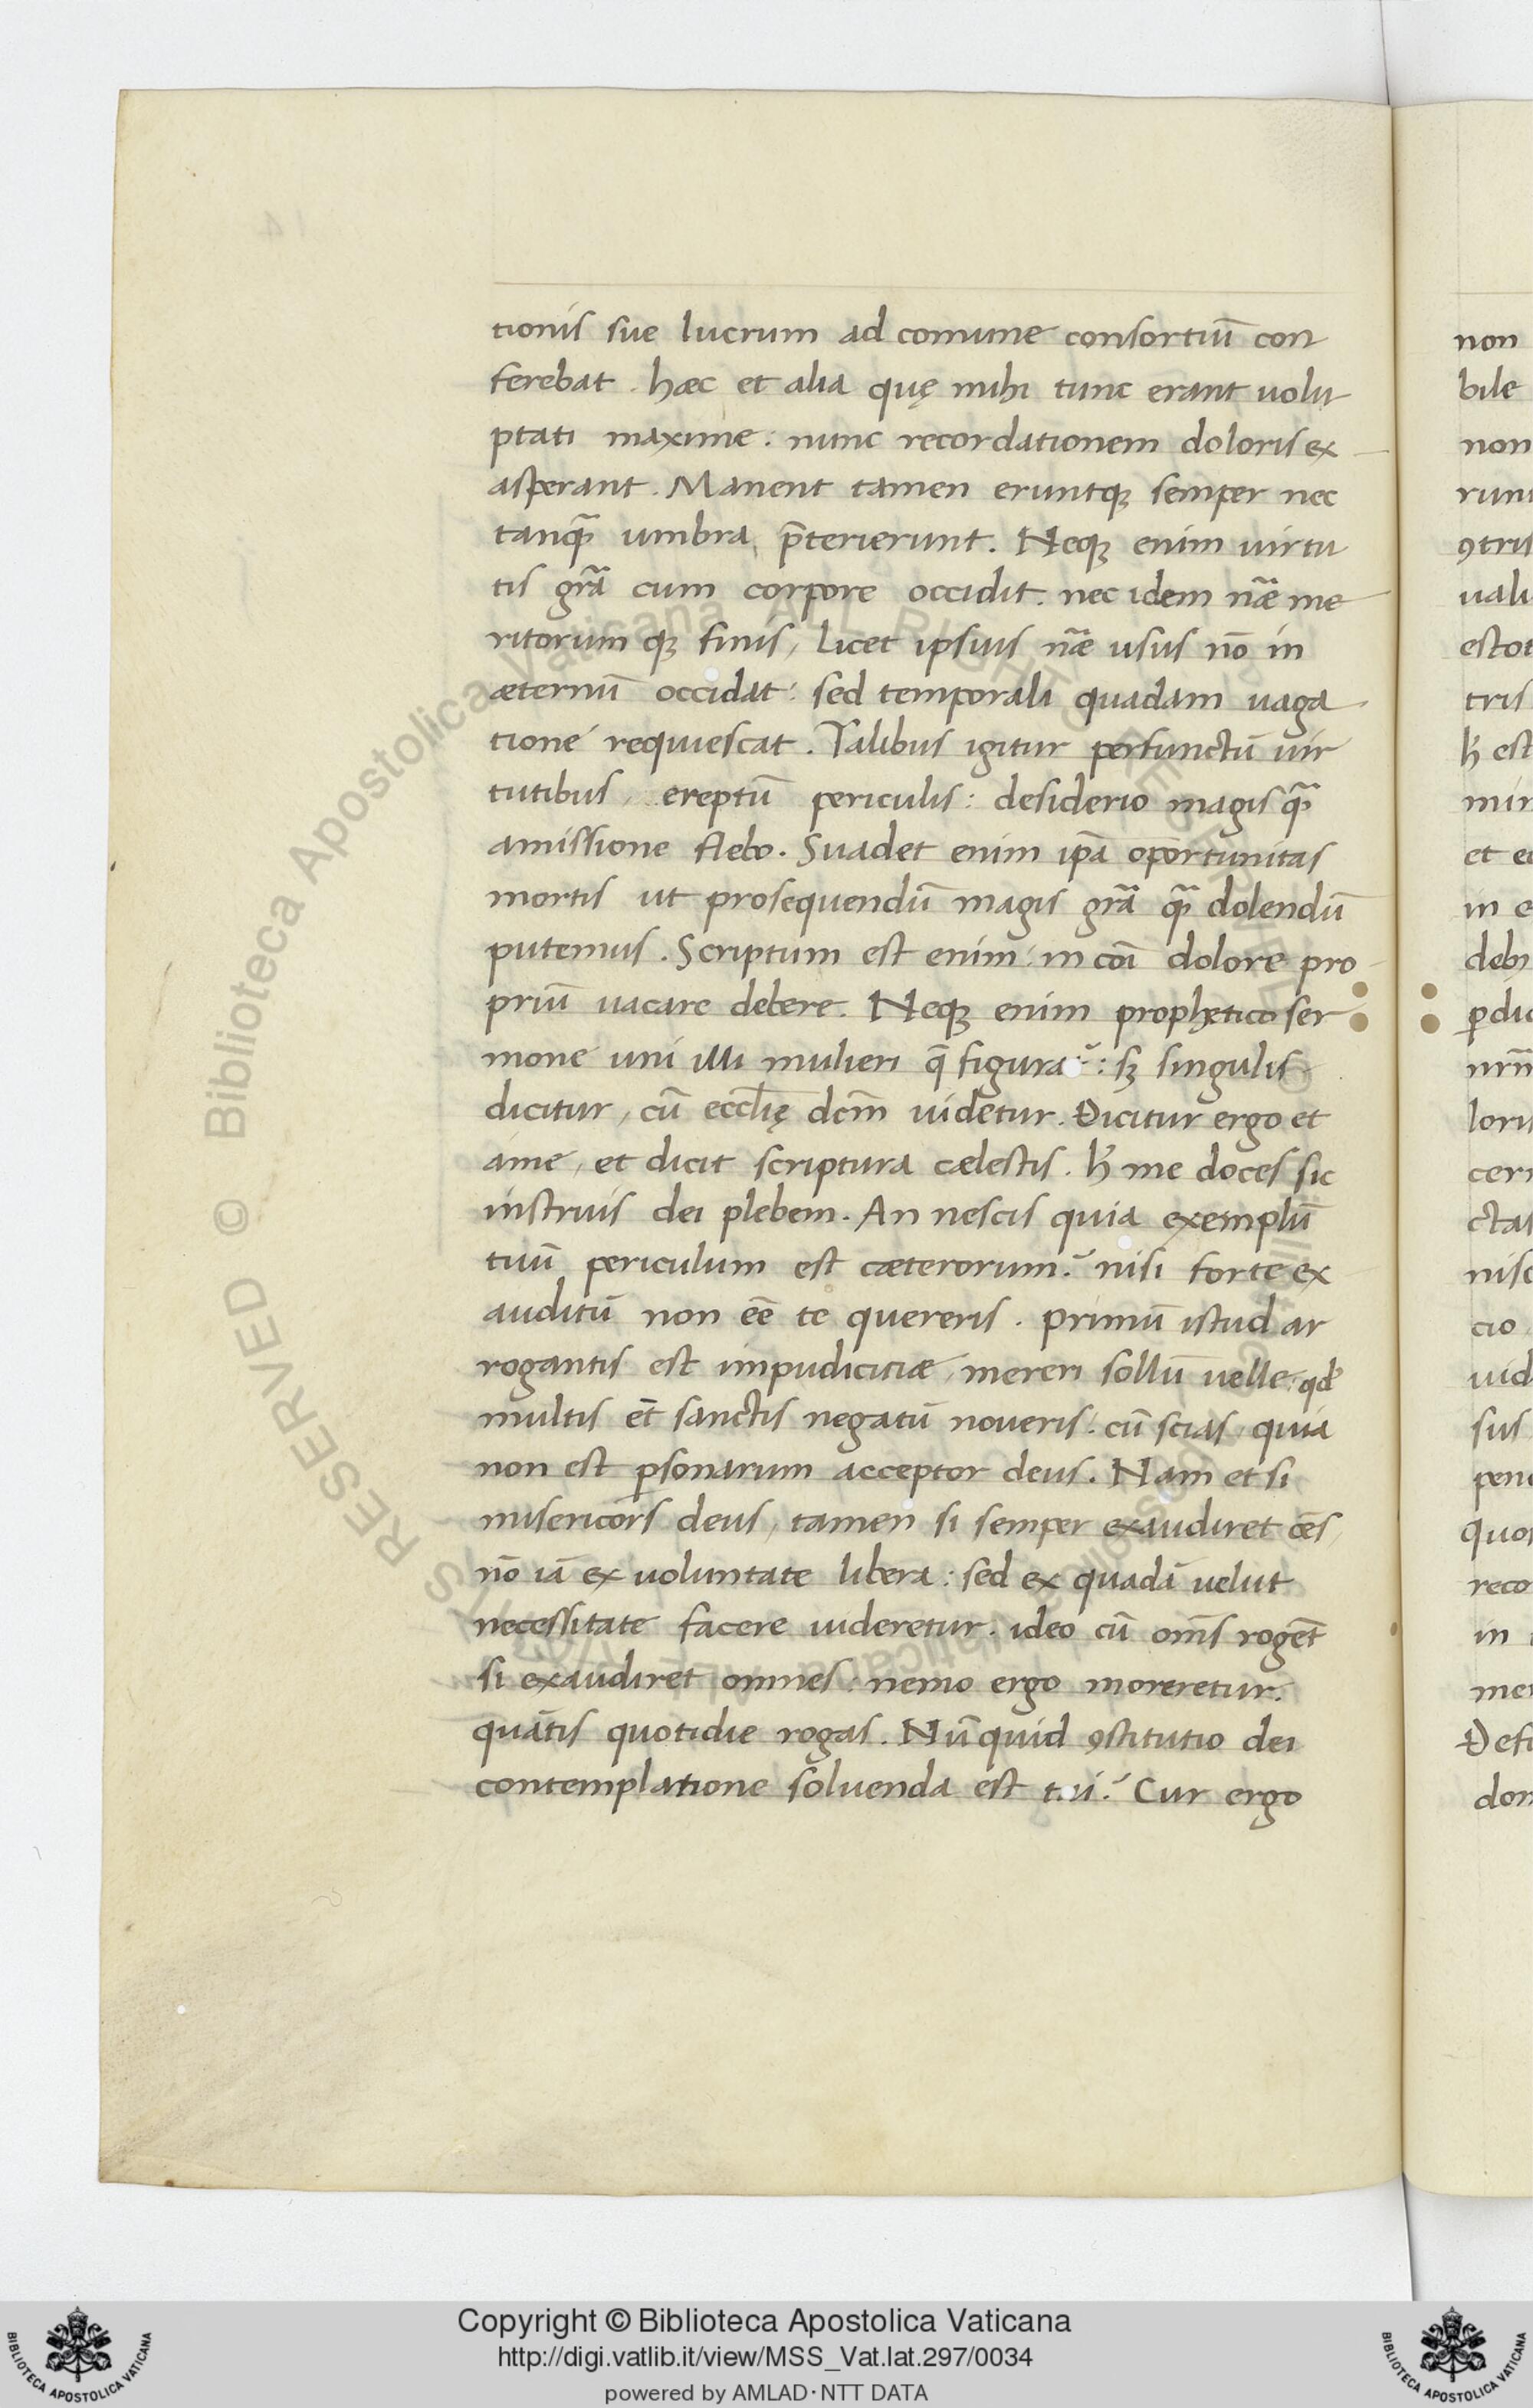 tionis sue lucrum ad comune consortiū con
ferebat. hæc et alia quę mihi tunc erant volu
ptati maxime: nunc recordationem doloris ex
asperant. Manent tamen eruntqꝫ semper nec
tanqᷓ umbra p̄terierunt. Neqꝫ enim uirtu
tis gr̄a cum corpore occidit. nec idem n̄æ me
ritorum qꝫ finis, licet ipsius n̄æ usus nō in
æternū occidat: sed temporali quadam uaga
tione requiescat. Talibus igitur perfunctū uir
tutibus, ereptū periculis: desiderio magis qᷓ
amissione flebo. Suadet enim ip̄a oportunitas
mortis ut prosequendū magis gr̄a qᷓ dolendū
putemus. Scriptum est enim: in cōi dolore pro
priū uacare debere. Neqꝫ enim prophetico ser
mone uni illi mulieri q̄ figura: sꝫ singulis
dicitur, cū eccl̄ię dc̄m uidetur. Dicitur ergo et
ame, et dicit scriptura cælestis. h̓ me doces sic
instruis dei plebem. An nescis quia exemplū
tuū periculum est cæterorum? nisi forte ex
auditū non eē te quereris. primū istud ar
rogantis est impudicitiæ, mereri sollū uelle: qd̓
multis et̄ sanctis negatū noueris: cū scias quia
non est ꝑsonarum acceptor deus. Nam et si
misericors deus, tamen si semper exaudiret oēs,
nō iā ex uoluntate libera: sed ex quadā uelut
necessitate facere uideretur. ideo cū om̄s rogēt
si exaudiret omnes: nemo ergo moreretur.
quātis quotidie rogas. Nūquid ꝯstitutio dei
contemplatione soluenda est tui? Cur ergo
non
bile
non
ꝯtris
estot
tris
h̓ est
et e
in e
loru
nisc
cio
uid
sus
quo
reco
in
me
Defu
don
RESERVED © Biblioteca Apostolica Vaticana ALL RIGHTS RESERVED
Copyright © Biblioteca Apostolica Vaticana
http://digi.vatlib.it/view/MSS_Vat.lat.297/0034
powered by AMLAD·NTT DATA
BIBLIOTECA APOSTOLICA VATICANA
BIBLIOTECA APOSTOLICA VATICANA